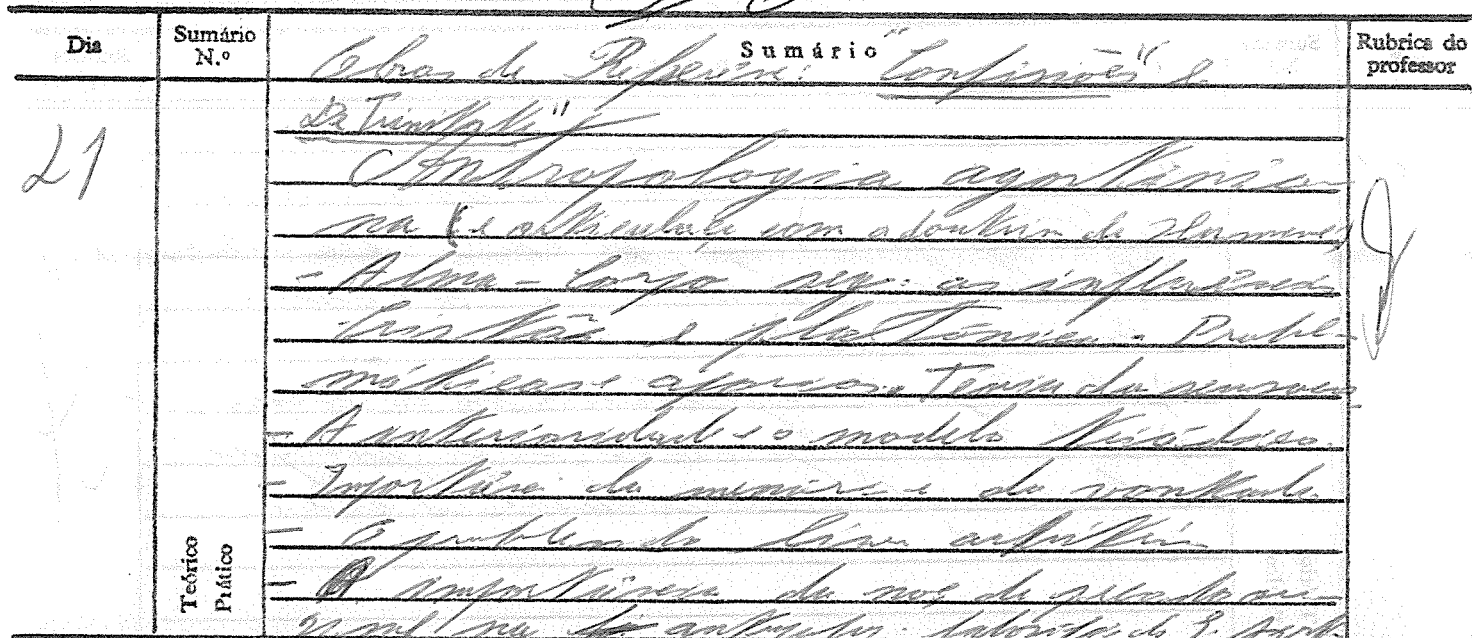 Dia
Sumário N.º
Sumário
Rubrica do professor
Obras de Referênc: "Confissões" e
De Trinitate"
Antropologia agostinia-
na (e articulaç com a doutrina de
- Alma - Corpo seg. as influências
Cristã e platónica - Probl-
máticas e aporias. Teoria da
- A anterioridade e o modelo
- Importânc da memór e da vontade
- O problem do livre arbítrio
- A importância da noç de pecado ori-
ginal na
21
Teórico
Prático